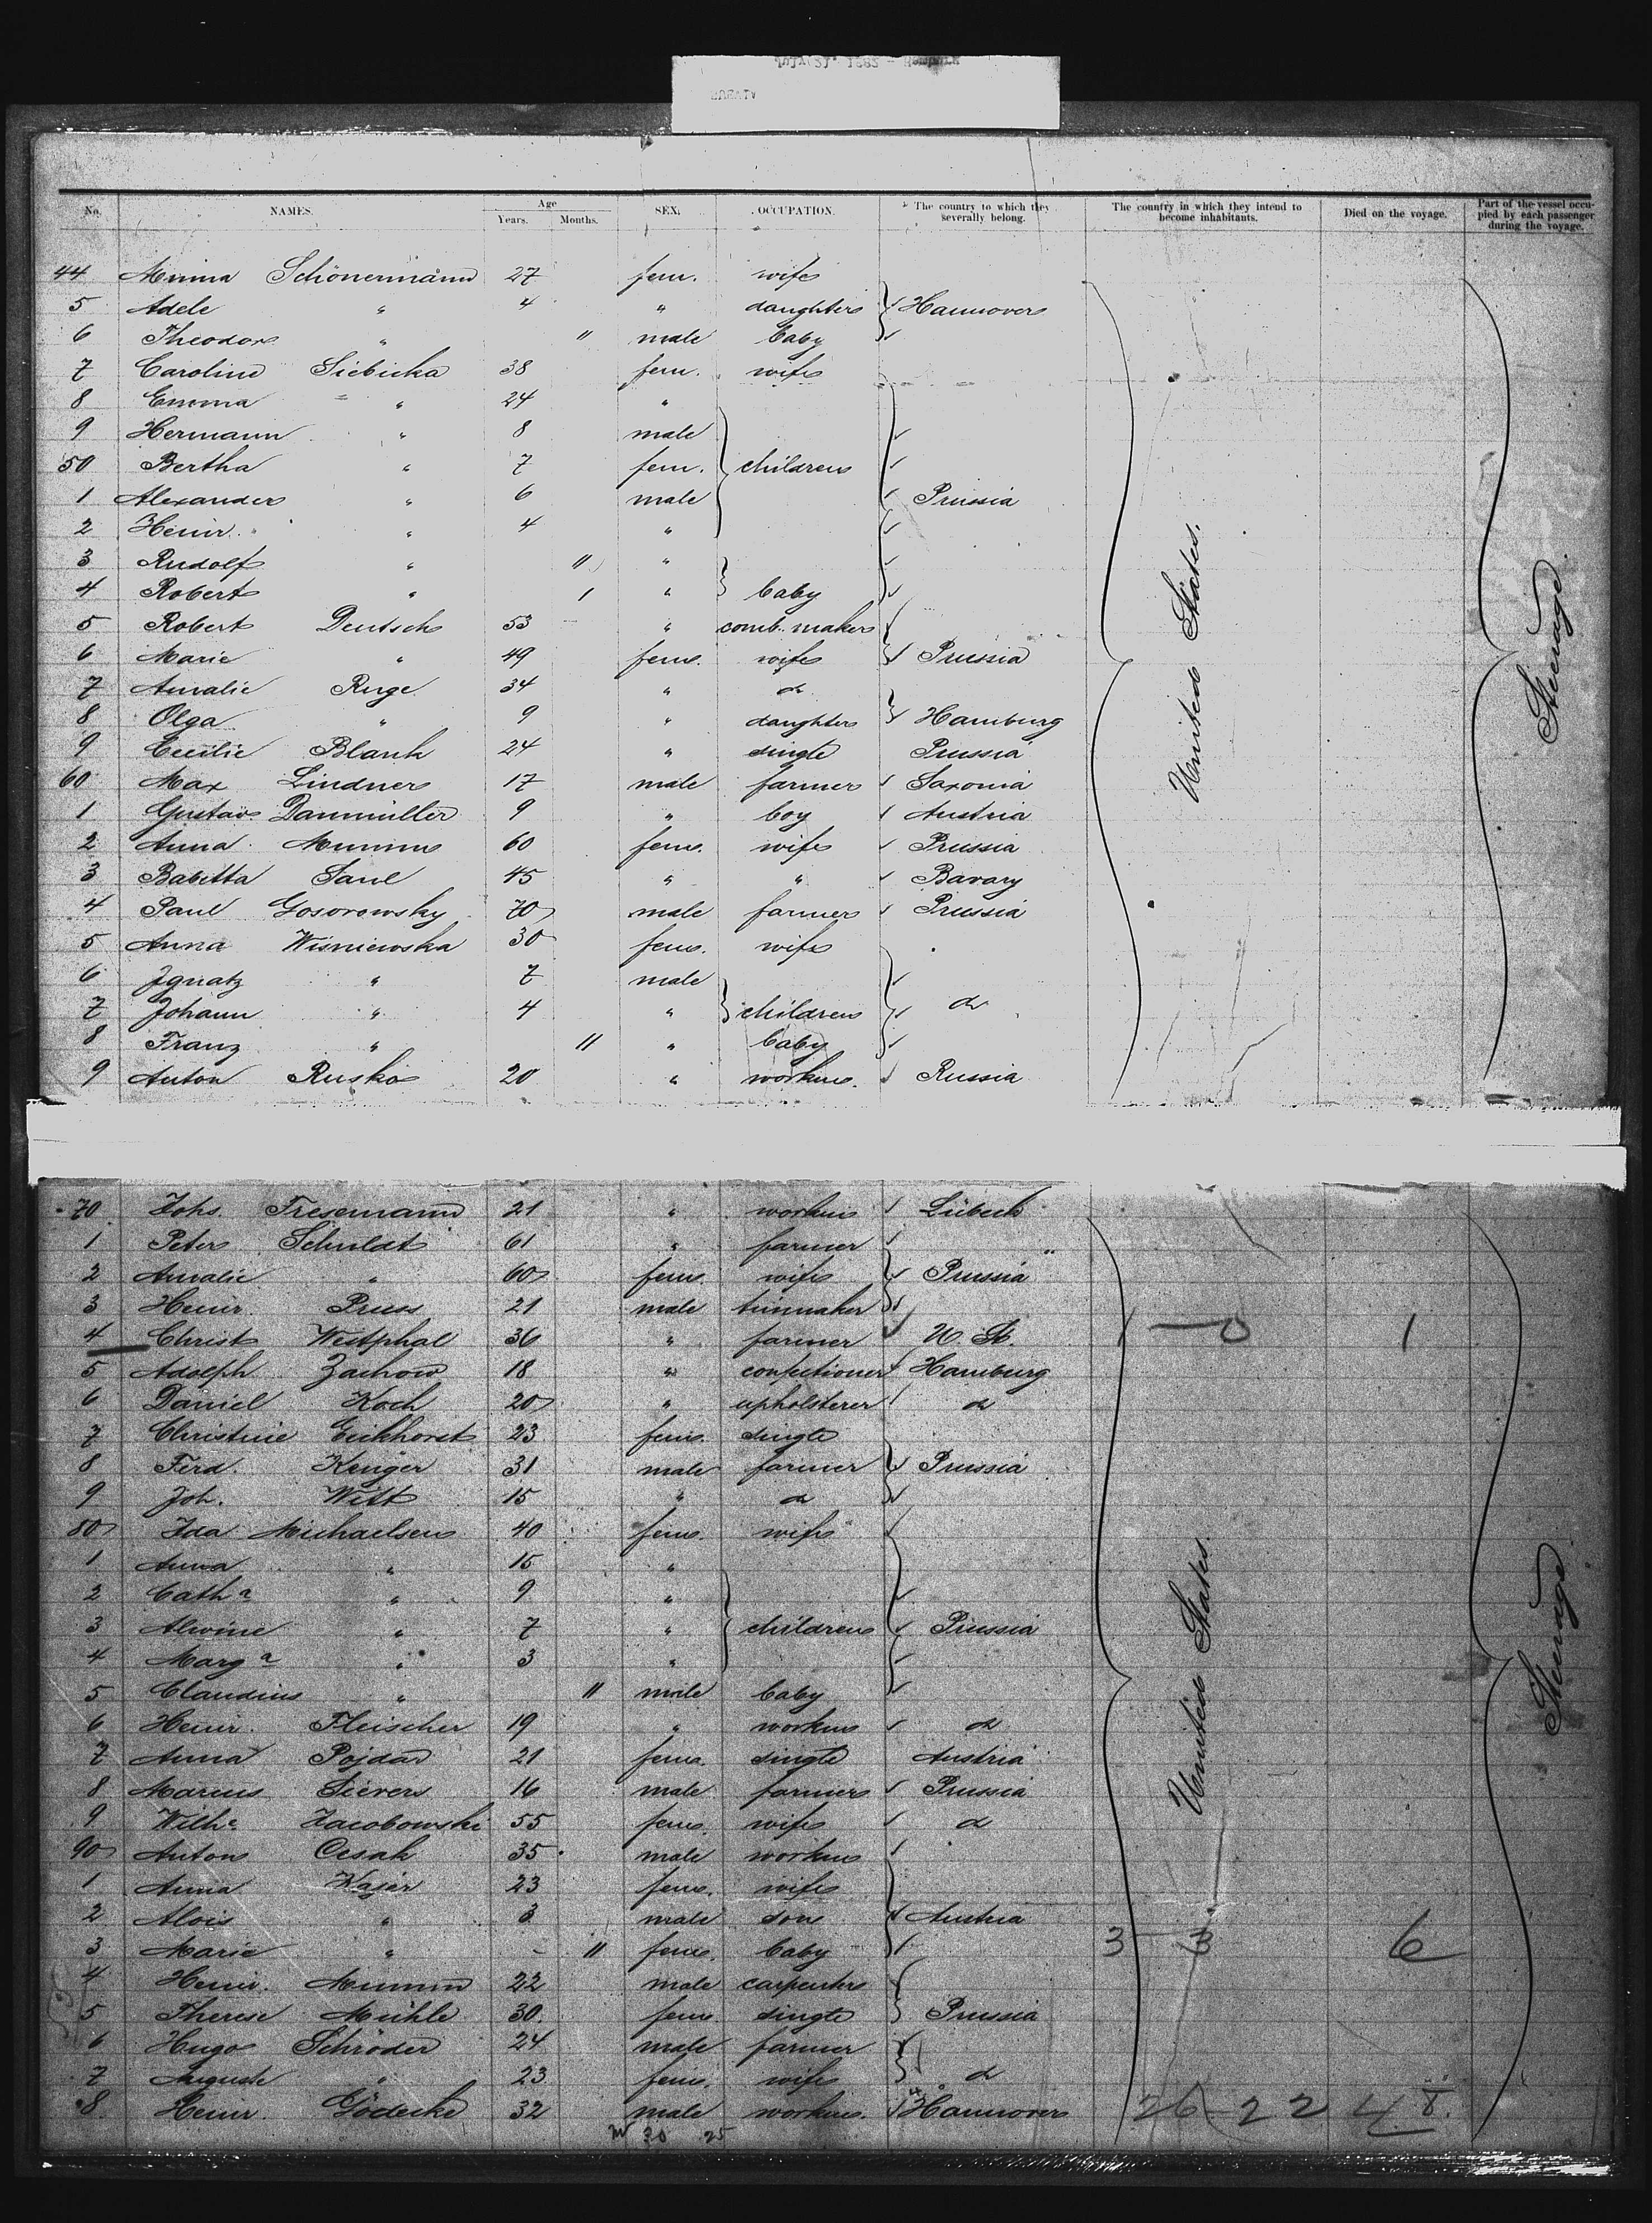 No. NAMES. Age Years. Months. SEX. OCCUPATION. The country to which they severally belong. The country in which they intend to become inhabitants. Died on the voyage. Part of the vessel occupied by each passenger during the voyage.
44 Minna Schönermann 27 fem. wife
5 Adele " 4 " daughter Hannover
6 Theodor " 11 male baby
7 Caroline Siebicka 38 fem. wife
8 Emma " 24 "
9 Hermann " 8 male
50 Bertha " 7 fem. children
1 Alexander " 6 male Prussia
2 Heinr. " 4 "
3 Rudolf " 11 "
4 Robert " 1 " baby
5 Robert Deutsch 53 " comb. maker
6 Marie " 49 fem. wife Prussia
7 Amalie Ruge 34 " do
8 Olga " 9 " daughter Hamburg
9 Cecilie Blank 24 " single Prussia
60 Max Lindner 17 male farmer Saxonia
1 Gustav Danmüller 9 " boy Austria
2 Anna Mumm 60 fem. wife Prussia
3 Babitta Saul 45 " " Bavary
4 Paul Gosorowsky 70 male farmer Prussia
5 Anna Wisniewska 30 fem. wife
6 Ignatz " 7 male
7 Johann " 4 " children do
8 Franz " 11 " baby
9 Anton Rusko 20 " workm. Russia
United States.
Steerage
70 Johs. Fresemann 21 " workm Lübeck
1 Peter Schuldt 61 " farmer
2 Amalie " 60 fem. wife Prussia
3 Heinr. Pruss 21 male
4 Christ Westphal 36 " farmer U. St. 0 1
5 Adolph Zachow 18 " confectioner Hamburg
6 Daniel Koch 20 " upholsterer do
7 Christine Eickhorst 23 fem. single
8 Ferd. Krüger 31 male farmer Prussia
9 Joh. Witt 15 " do
80 Ida Michaelsen 40 fem. wife
1 Anna " 15 "
2 Catha " 9 "
3 Alwine " 7 " children Prussia
4 Marga " 3 "
5 Claudius " 11 male baby
6 Heinr. Fleischer 19 " workm do
7 Anna Pojdar 21 fem. single Austria
8 Marius Sievers 16 male farmer Prussia
9 Wilhe. Jacobowski 55 fem. wife do
90 Anton Cesak 35 male workm
1 Anna Kajer 23 fem. wife
2 Alois " 3 male son Austria
3 Marie " 11 fem. baby 3 3 6
4 Heinr. Mumm 22 male carpenter
5 Therese Mühle 30 fem. single Prussia
6 Hugo Schröder 24 male farmer
7 Auguste " 23 fem. wife do
8 Heinr. Gödecke 32 male workm. Hannover 26 22 48
30 25
United States.
Steerage